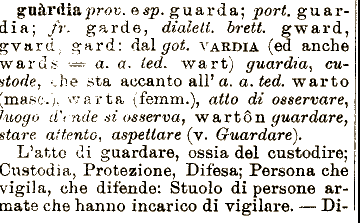 guàrdia prov. e sp. guarda; port. guar-
dia; fr. garde, dialett. brett. gward,
gvard, gard: dal got. VARDIA (ed anche
wards = a. a. ted. wart) guardia, cu-
stode, che sta accanto all' a. a. ted. warto
(masc.), warta (femm.), atto di osservare,
luogo d'onde si osserva, wartôn guardare,
stare attento, aspettare (v. Guardare).
L'atto di guardare, ossia del custodire;
Custodia, Protezione, Difesa; Persona che
vigila, che difende: Stuolo di persone ar-
mate che hanno incarico di vigilare. — Di-